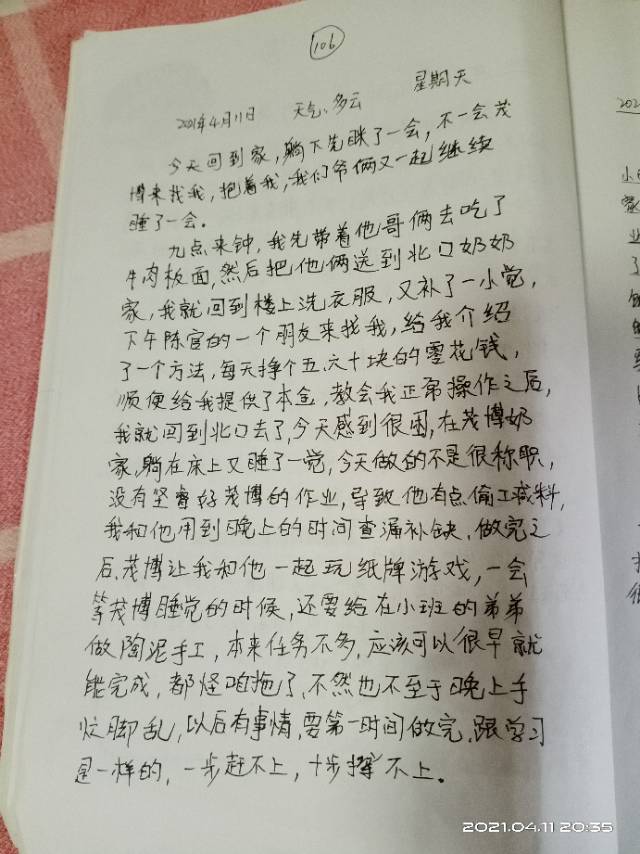 106
2021年4月11日 天气、多云 星期天
今天回到家，躺下先眯了一会，不一会茂
博来找我，抱着我，我们爷俩又一起继续
睡了一会。
九点来钟，我先带着他哥俩去吃了
牛肉板面，然后把他俩送到北口奶奶
家，我就回到楼上洗衣服，又补了一小觉，
下午陈官的一个朋友来找我，给我介绍
了一个方法，每天挣个五六十块的零花钱，
顺便给我提供了本金，教会我正常操作之后，
我就回到北口去了，今天感到很困，在茂博奶
家，躺在床上又睡了一觉，今天做的不是很称职，
没有坚看好茂博的作业，导致他有点偷工减料，
我和他用到晚上的时间查漏补缺，做完之
后，茂博让我和他一起玩纸牌游戏，一会
等茂博睡觉的时候，还要给在小班的弟弟
做陶泥手工，本来任务不多，应该可以很早就
能完成，都怪咱拖了，不然也不至于晚上手
忙脚乱，以后有事情，要第一时间做完，跟学习
是一样的，一步赶不上，十步撵不上。
202
小
家
业
了
2021.04.11 20:35